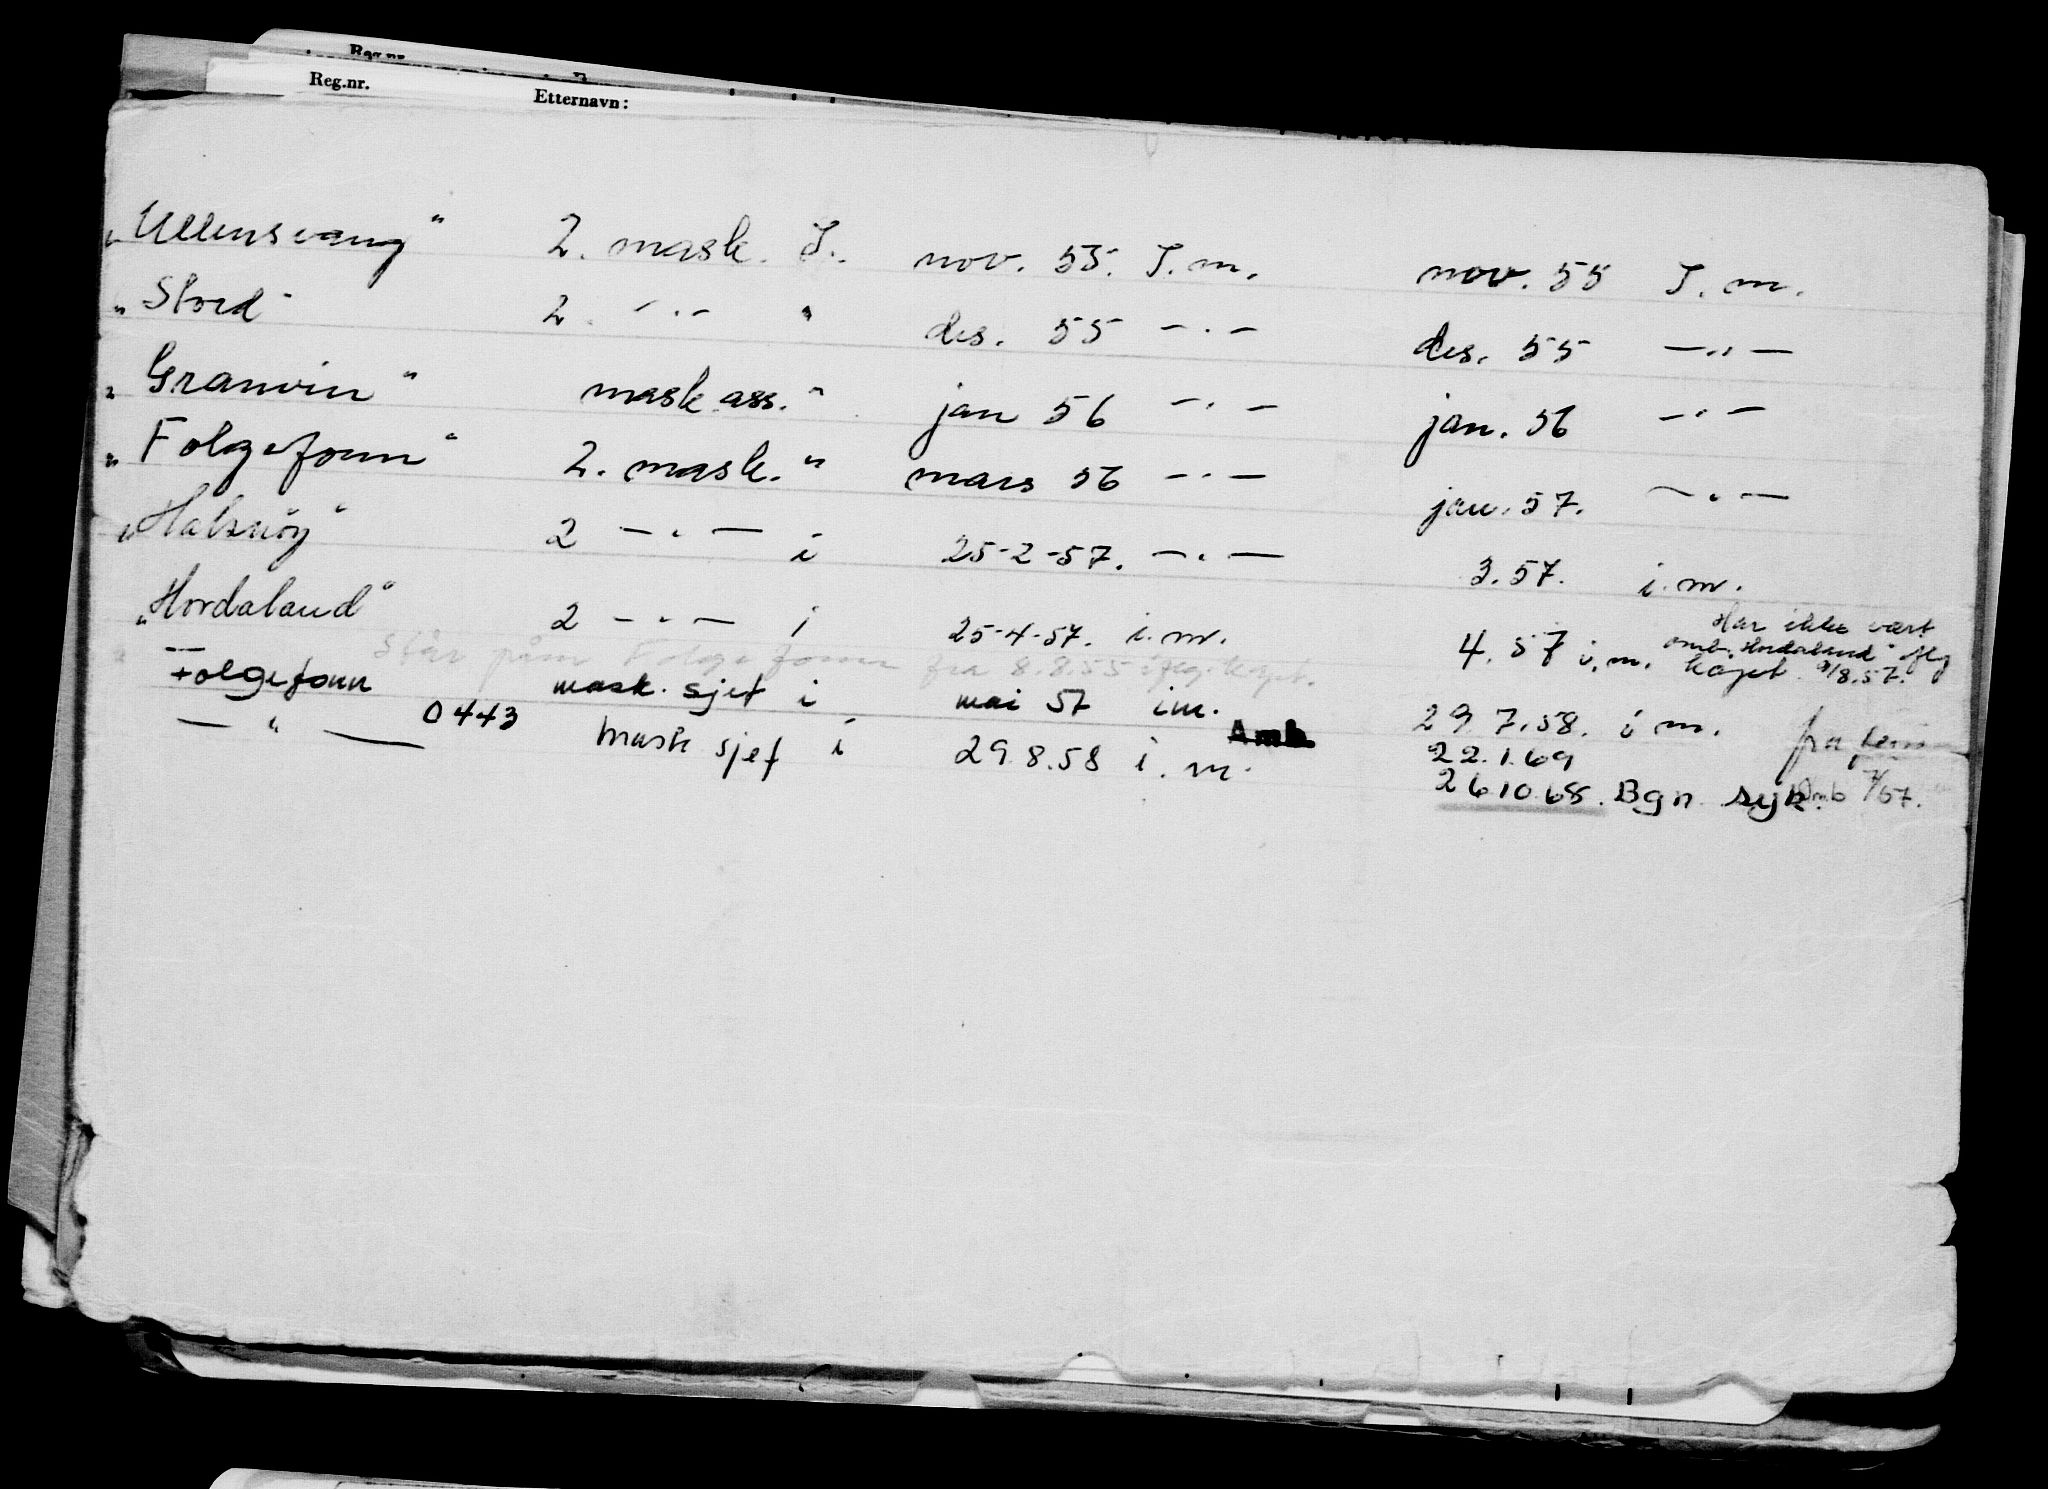 Reg.nr.
Reg.nr. Etternavn:
"Ullensvang" 2. mask. I. nov. 55. I.m. nov. 55 I.m.
"Stord" 2. - " - " des. 55 - " - des. 55 - " -
"Granvin" mask ass. " jan 56 - " - jan. 56 - " -
"Folgefonn" 2. mask. " mars 56 - " - jan. 57. - " -
"Halsnøy" 2 - " - i 25-2-57. - " - 3.57. i.m.
"Hordaland" 2 - " - i 25-4-57. i.m. 4.57 i.m. Har ikke vært
omb. "Hordaland" iflg
kapt. 9/8.57.
Står påm Folgefonn fra 8.8.55 iflg. kapt.
Folgefonn mask. sjef i mai 57 im. 29.7.58. i m. fra
- " - 0443 mask sjef i 29.8.58 i.m. Amb 22.1.69
26.10.68. Bgn. syk. Omb 7/57.